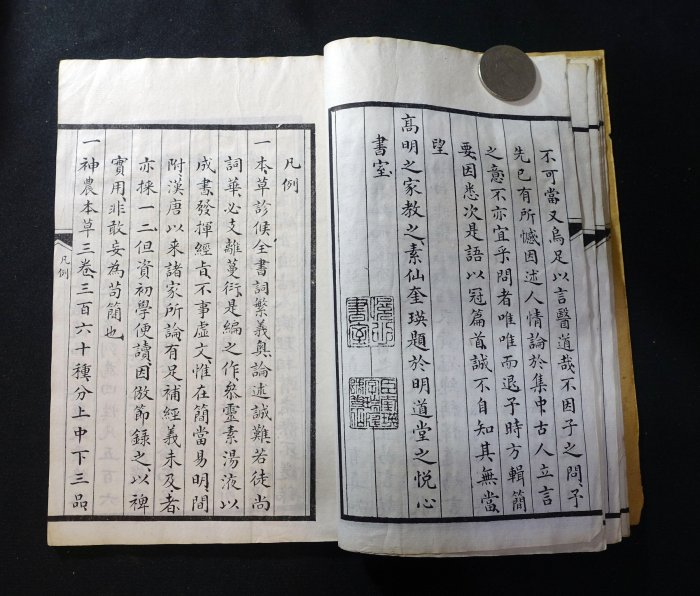 不可當又烏足以言醫道哉不因子之問予
先已有所憾因述人情論於集中古人立言
之意不亦宜乎問者唯唯而退予時方輯簡
要因悉次是語以冠篇首誠不自知其無當
望
高明之家教之素仙奎瑛題於明道堂之悅心
書室
悅心書室
凡例
一本草診候全書詞繁義奧論述誠難若徒尚
詞華必支離蔓衍是編之作叅靈素湯液以
成書發揮經旨不事虛文惟在簡當易明間
附漢唐以来諸家所論有足補經義未及者
亦採一二但資初學便讀因倣節錄之以裨
實用非敢妄為苟簡也
一神農本草三卷三百六十種分上中下三品
凡例